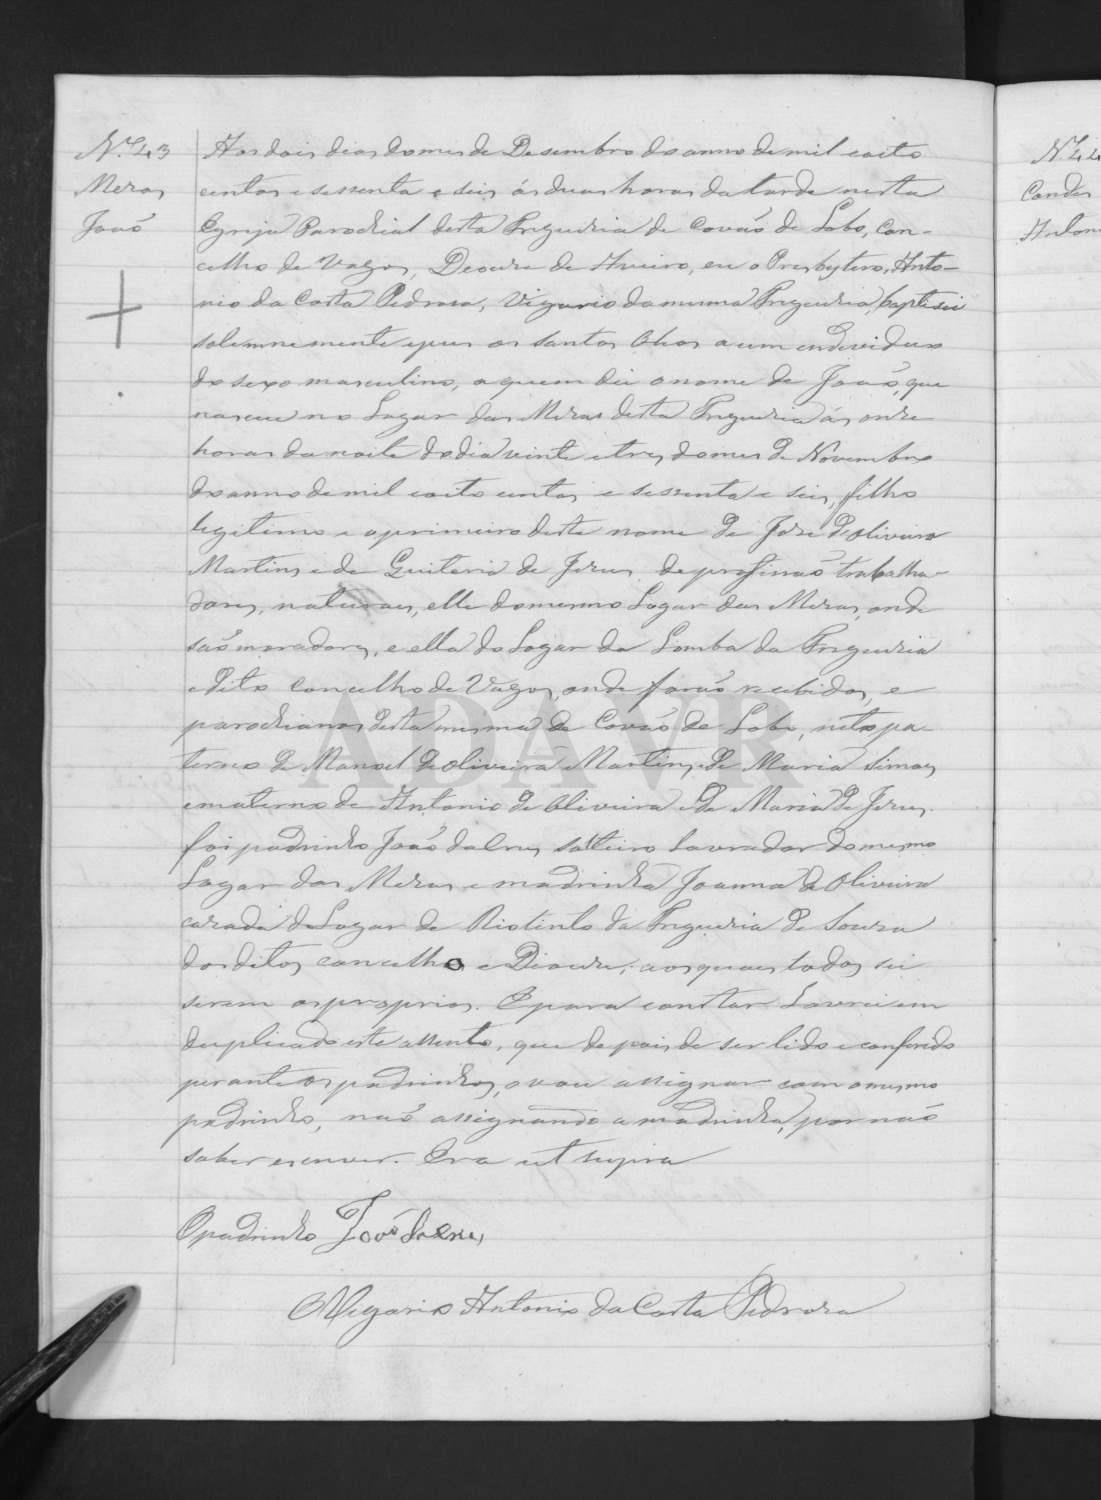 N.º 43
Meras
João
Aos dois dias do mes de Desembro do anno de mil oito
centos e sessenta e seis ás duas horas da tarde nesta
Egreja Parochial desta Freguesia de Covão de Lobo, Con-
celho de Vagos, Deocese de Aveiro, eu o Presbytero, Anto-
nio da Costa Pedrosa, Vigario da mesma Freguesia, baptisei
solemnemente e pus os santos Olios a um endeviduo
do sexo masculino, a quem dei o nome de João, que
nasceu no Lugar das Meras desta Freguesia ás onze
horas da noite do dia vinte e tres do mes de Novembro
do anno de mil oito centos e sessenta e seis, filho
legitimo e o primeiro deste nome de José d'Oliveira
Martins e de Guiteria de Jesus de profissão trabalha-
dores, naturaes, elle do mesmo Lugar das Meras, onde
são moradores, e ella do Lugar da Lomba da Freguesia
e dito concelho de Vagos, onde forão recebidos, e
parochianos desta mesma de Covão de Lobo, neto pa-
terno de Manoel de Oliveira Martins e de Maria Simões
e materno de Antonio de Oliveira e de Maria de Jesus.
foi padrinho João da Crus solteiro Lavrador do mesmo
Lugar das Meras e madrinha Joanna de Oliveira
casada do Lugar de Riotinto da Freguesia de Sousa
dos ditos concelho e Diocese, aos quaes todos sei
serem os proprios. E para constar Lavrei em
duplicado este assento, que depois de ser lido e conferido
perante os padrinhos, o vou assignar com o mesmo
padrinho, não assignando a madrinha, por não
saber escrever. Era ut supra
O padrinho João da Crus
O Vigario Antonio da Costa Pedrosa
N.º 44
Condes
Antoni
ADAVR